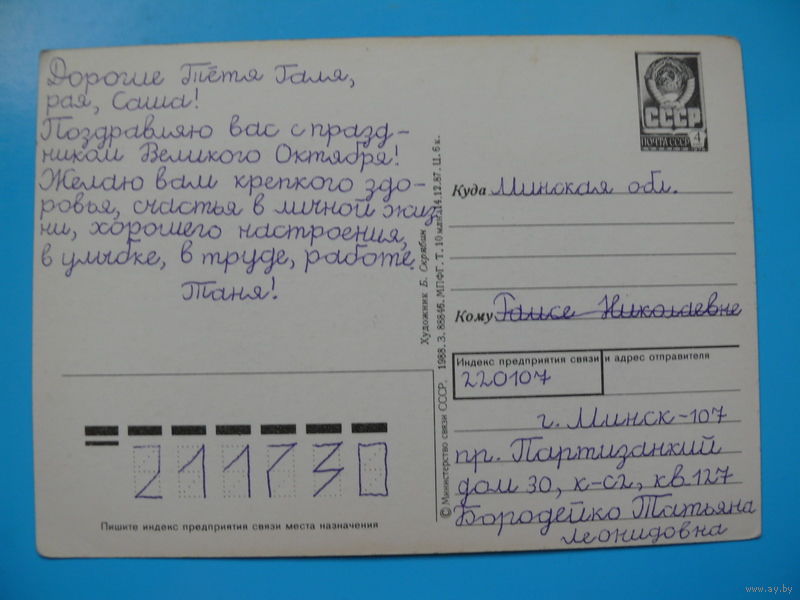 Дорогие Тётя Галя,
рая, Саша!
Поздравляю вас с празд-
ником Великого Октября!
Желаю вам крепкого здо-
ровья, счастья в личной жиз-
ни, хорошего настроения,
в улыбке, в труде, работе.
Таня!
Пишите индекс предприятия связи места назначения
Художник Б. Скрябин
© Министерство связи СССР. 1988. З. 88846. МПФГ. Т. 10 млн. 14.12.87. Ц. 6 к.
СССР
ПОЧТА СССР 4
Куда Минская обл.
Кому Раисе Николаевне
Индекс предприятия связи и адрес отправителя
220107
г. Минск-107
пр. Партизанкий
дом 30, к-с2, кв 127
Бородейко Татьяна
Леонидовна
www.ay.by